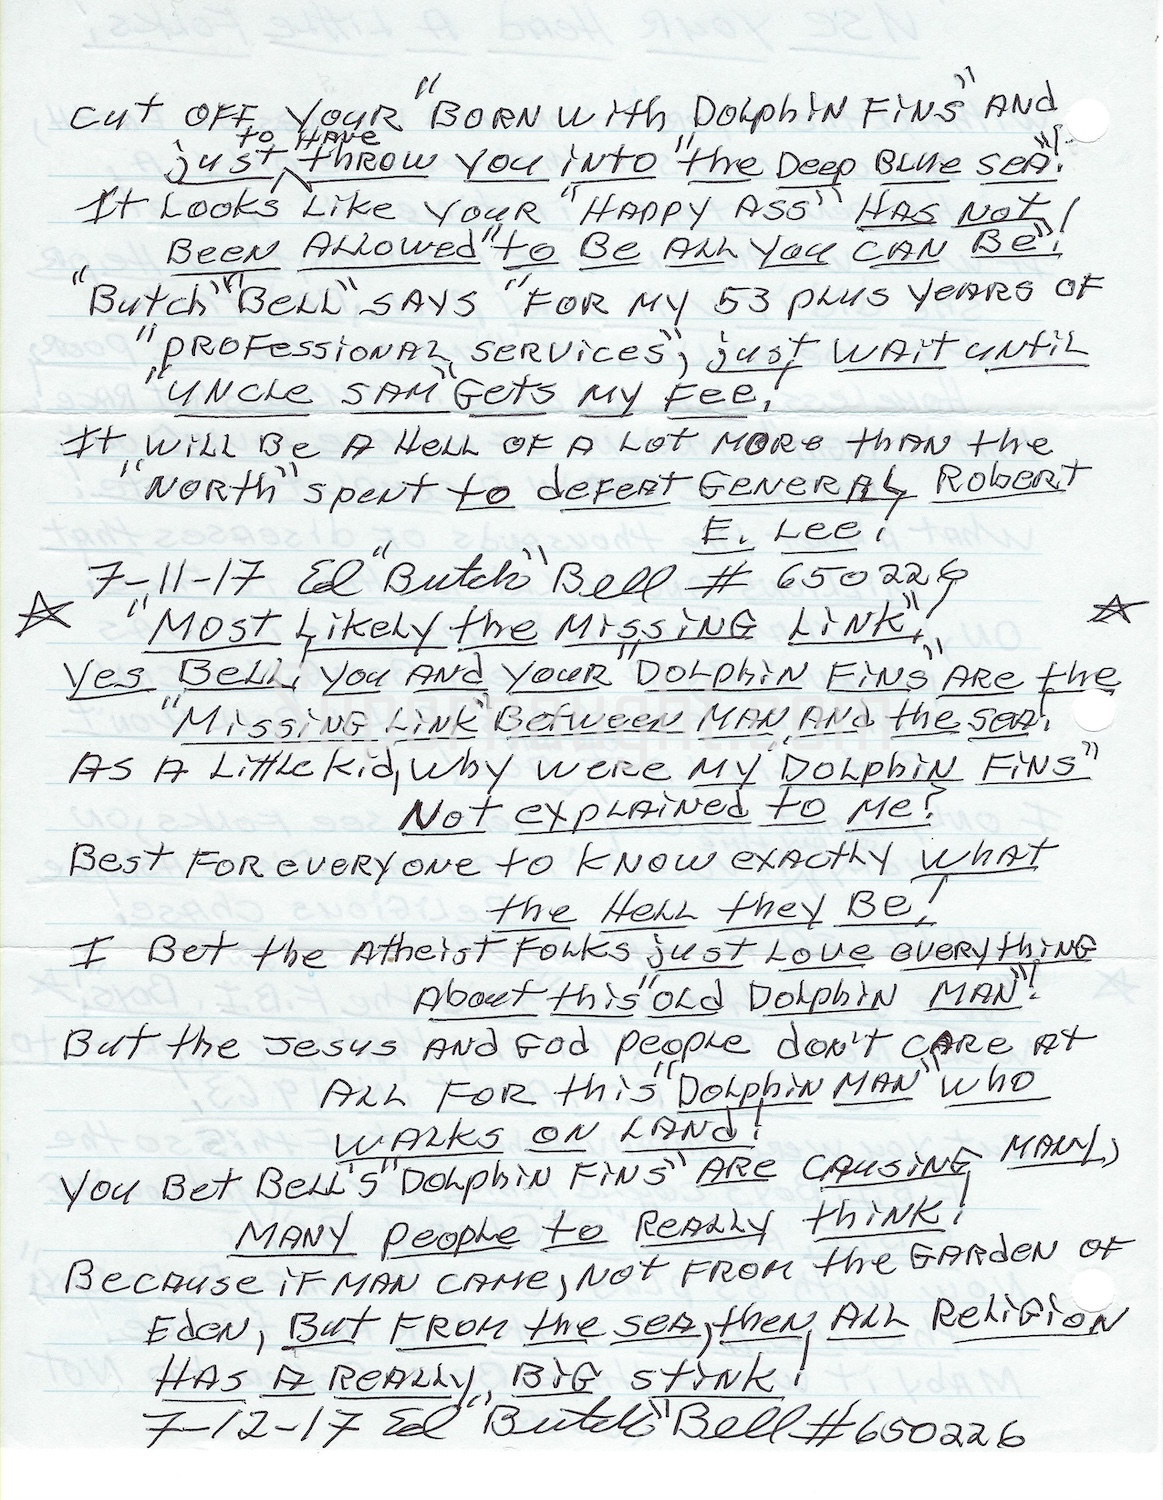 cut OFF YOUR "BORN With DOLphin FiNS" AND
just to HAVE throw you iNto "the Deep Blue SEA"!
It Looks Like YOUR "HAPPY ASS" HAS Not
Been ALLOWED "to Be ALL You CAN Be"!
"Butch" "Bell" SAYS "FOR MY 53 plus years OF
"PROFessional services", just WAit until
"UNCLE SAM" Gets MY Fee!
It will Be A Hell OF A Lot MORe than the
"NORth" spent to defeat GENERAL Robert
E. Lee!
7-11-17 Ed "Butch" Bell # 650226
"Most Likely the MissiNG LINK"!
Yes Bell, you AND your "DOLphin FiNS" ARe the
"MissiNG LiNK" Between MAN AND the sea!
AS A Little kid, why were MY "DOLphin FiNS"
Not explained to Me?
Best FOR everyone to KNOW exactly WHAT
the Hell they Be!
I Bet the Atheist FOLKS just Love everything
About this "OLD DOLphin MAN"!
But the Jesus AND God people don't CARe At
ALL FOR this "DOLphin MAN" who
WALKS ON LAND!
You Bet Bell's "DOLphin FiNS" ARe CAUSING MANY,
MANY people to Really think!
BECAUse iF MAN CAMe, NOt FROM the GARDEN OF
EdeN, But FROM the sea, then ALL ReLiGiON
HAS A REALLY, BiG stiNK!
7-12-17 Ed "Butch" Bell #650226